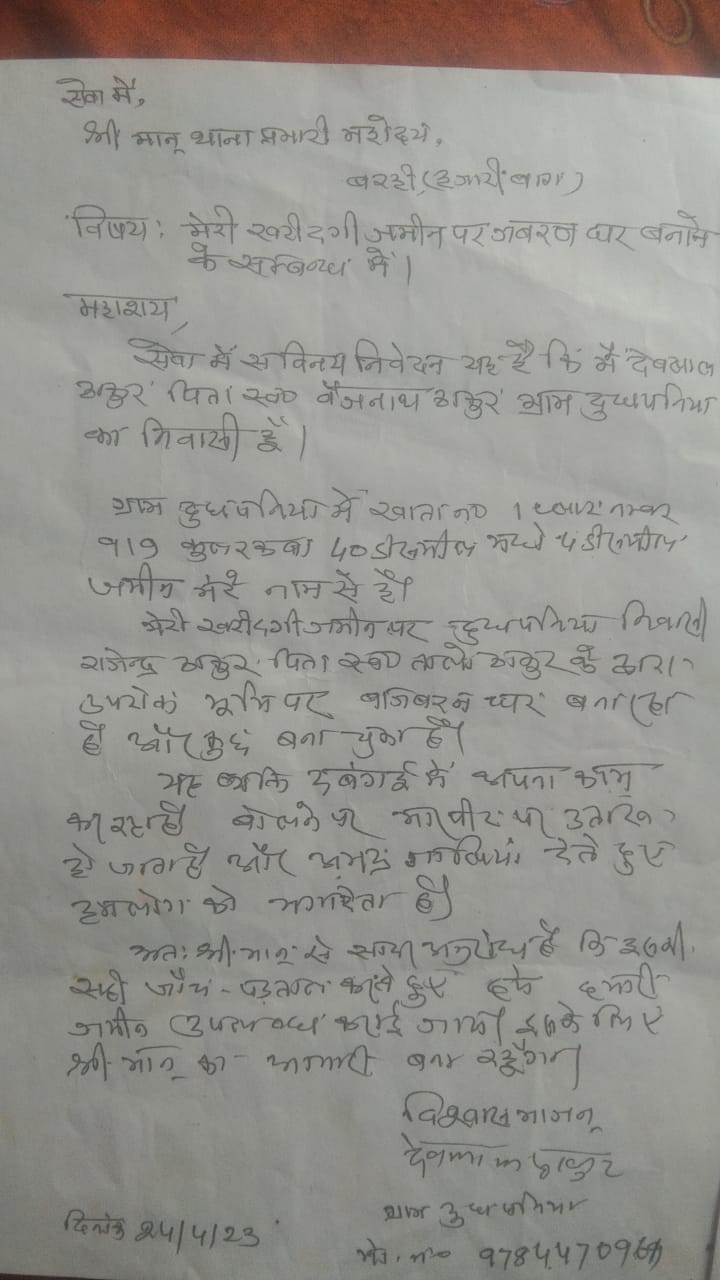 सेवा में,
श्री मान् थाना प्रभारी महोदय,
बरही, (हजारीबाग)
विषय: मेरी खरीदगी जमीन पर जबरन घर बनाने
के सम्बन्ध में।
महाशय,
सेवा में सविनय निवेदन यह है कि मैं देवलाल
ठाकुर पिता स्व० बैजनाथ ठाकुर ग्राम दुधपनिया
का निवासी हूँ।
ग्राम दुधपनिया में खाता न० 1 प्लाट नम्बर
919 कुल रकबा 40 डीसमील मध्ये 4 डीसमील
जमीन मेरे नाम से है।
मेरी खरीदगी जमीन पर दुधपनिया निवासी
राजेन्द्र ठाकुर पिता स्व० ठाकुर के द्वारा
उपरोक्त भूमि पर घर बना रहा
है और कुछ बना चुका है।
यह व्यक्ति दबंगई में अपना काम
कर रहा है बोलने पर मारपीट पर उतारू
हो जाता है और अभद्र गालियां देते हुए
हमलोग को भगा देता है।
अतः श्री मान् से सादर अनुरोध है कि इसकी
सही जाँच-पड़ताल करते हुए हमें हमारी
जमीन उपलब्ध कराई जाय। इसके लिए
श्री मान् का आभारी बना रहूँगा।
विश्वास भाजन्
देवलाल ठाकुर
ग्राम दुधपनिया
दिनांक 24/4/23
मो. न०